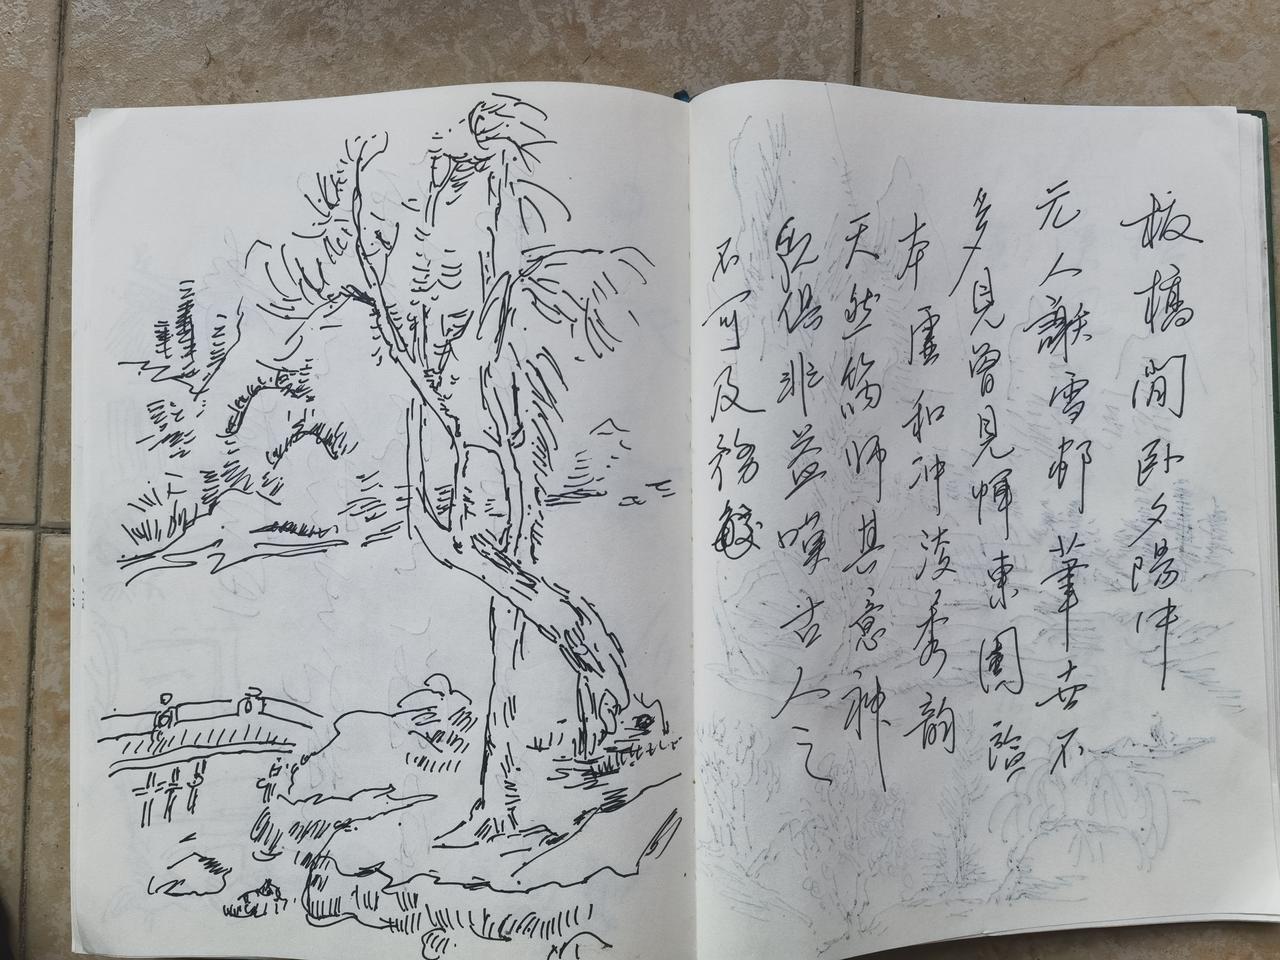 板橋閒卧夕陽中
元人謝雪邨筆世不
多見曾見惲東園臨
本虛和冲淡秀韵
天然筠師其意神
與俱非益嘆古人之
不可及務敏